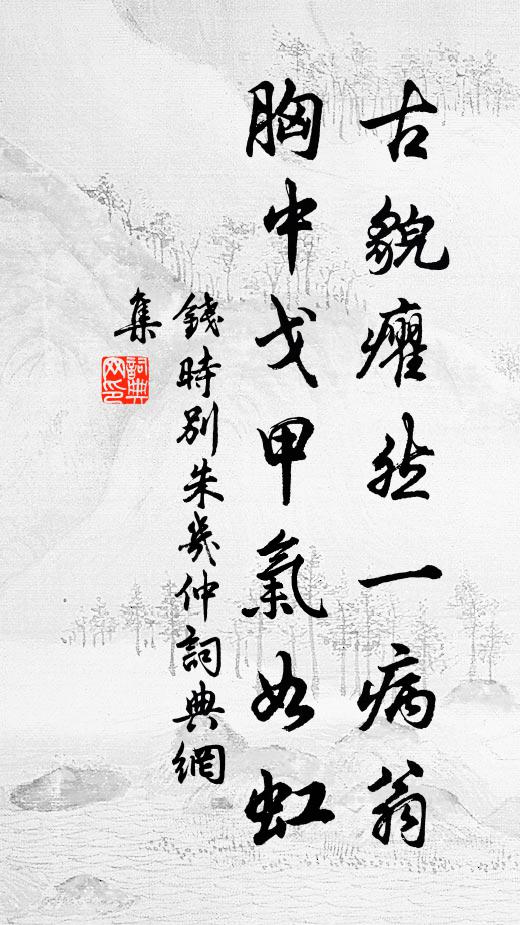 古貌癯然一病翁
胸中戈甲氣如虹
錢時別朱幾仲詞典網
集
詞典
网印